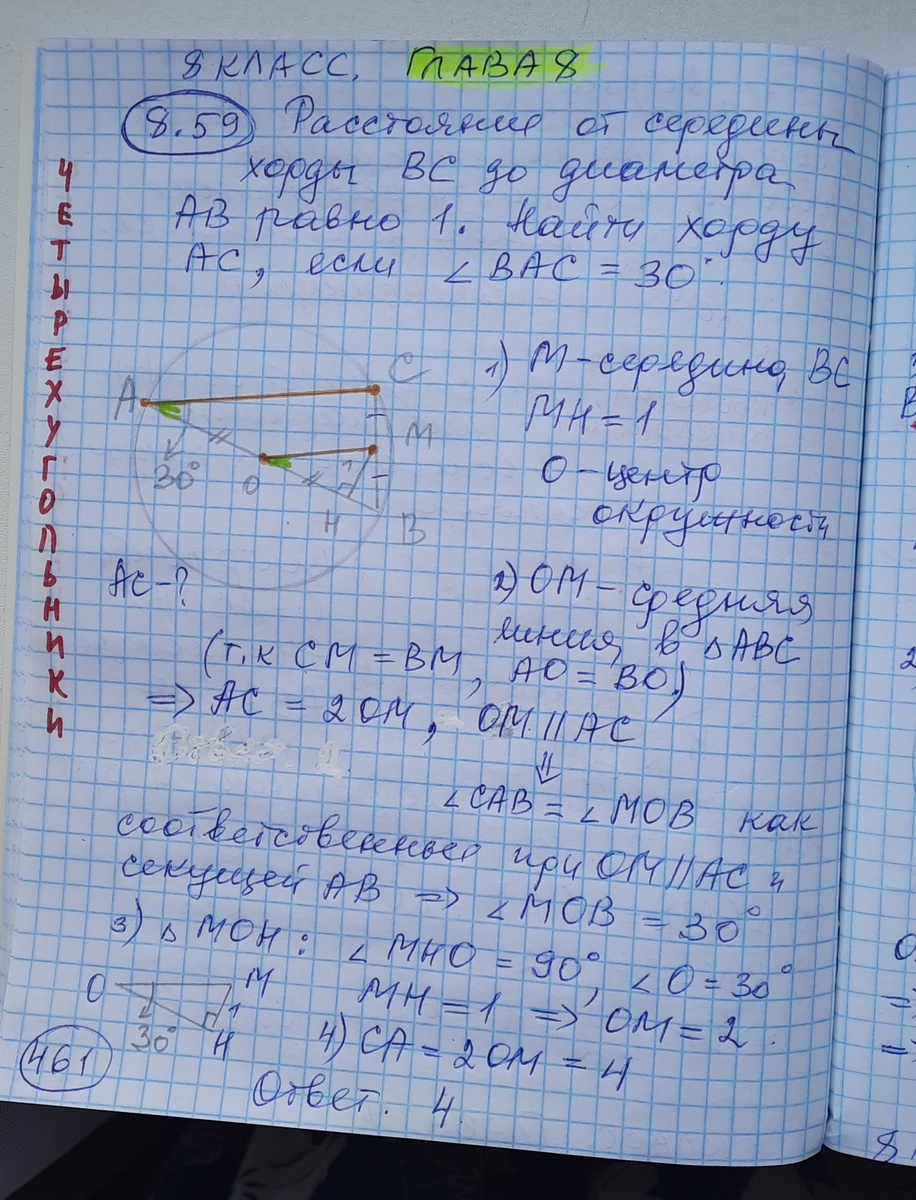 8 КЛАСС. ГЛАВА 8
8.59 Расстояние от середины
хорды BC до диаметра
AB равно 1. Найти хорду
AC, если ∠BAC = 30°.
ЧЕТЫРЕХУГОЛЬНИКИ
A
C
M
30°
O
1
H
B
1) M - середина BC
MH = 1
O - центр
окружности
AC - ?
2) OM - средняя
линия в △ABC
(т.к CM = BM, AO = BO)
=> AC = 2OM, OM || AC
⇓
∠CAB = ∠MOB как
соответственные при OM || AC и
секущей AB => ∠MOB = 30°
3) △MOH: ∠MHO = 90°, ∠O = 30°
MH = 1 => OM = 2.
O
M
1
30°
H
4) CA = 2OM = 4
461
Ответ. 4.